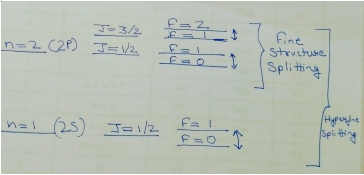 n=2 (2P) J=3/2 F=2
F=1
J=1/2 F=1
F=0
Fine
Structure
Splitting
n=1 (2S) J=1/2 F=1
F=0
Hyperfine
Splitting